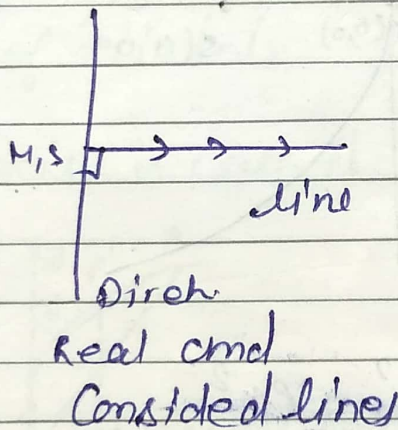 M,S
Line
Direh
Real and
Consided lines